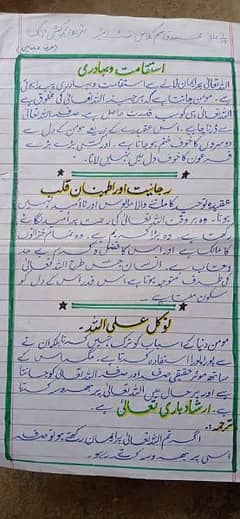 استقامت و بہادری
اللہ تعالیٰ پر ایمان لانے سے استقامت و بہادری پیدا ہوتی
ہے۔ مومن جانتا ہے کہ ہر چیز اللہ تعالیٰ کی مخلوق ہے
اللہ تعالیٰ ہی کو سب قدرت حاصل ہے۔ صرف اللہ تعالیٰ
سے ڈرنا چاہیے۔ اس عقیدے کے ذریعے مومن کے دل سے
دوسروں کا خوف ختم ہو جاتا ہے۔ اور کسی بڑے بڑے
فرعون کا خوف دل میں نہیں لاتا۔
رجائیت اور اطمینان قلب
عقیدہ توحید کا ماننے والا مایوس اور ناامید نہیں
ہوتا۔ وہ ہر وقت اللہ تعالیٰ کی رحمت پر آس لگائے
رکھتا ہے۔ وہ بڑا کریم ہے۔ وہ تمام خزانوں
کا مالک ہے اور اس کا فضل و کرم بے حد
و حساب ہے۔ انسان جس طرح اللہ تعالیٰ
کی طرف متوجہ ہوتا ہے اس قدر اس کے دل کو
سکون ملتا ہے۔
توکل علی اللہ۔
مومن دنیا کے اسباب کو ترک نہیں کرتا بلکہ ان سے
پورا پورا استفادہ کرتا ہے۔ مگر اس کے
ساتھ موثر حقیقی صرف اور صرف اللہ تعالیٰ کو جانتا
ہے اور ہر حال میں اللہ تعالیٰ پر بھروسہ کرتا
ہے۔ ارشاد باری تعالیٰ ہے
ترجمہ:
اگر تم اللہ تعالیٰ پر ایمان رکھتے ہو تو صرف
اسی پر بھروسہ کرتے رہو۔